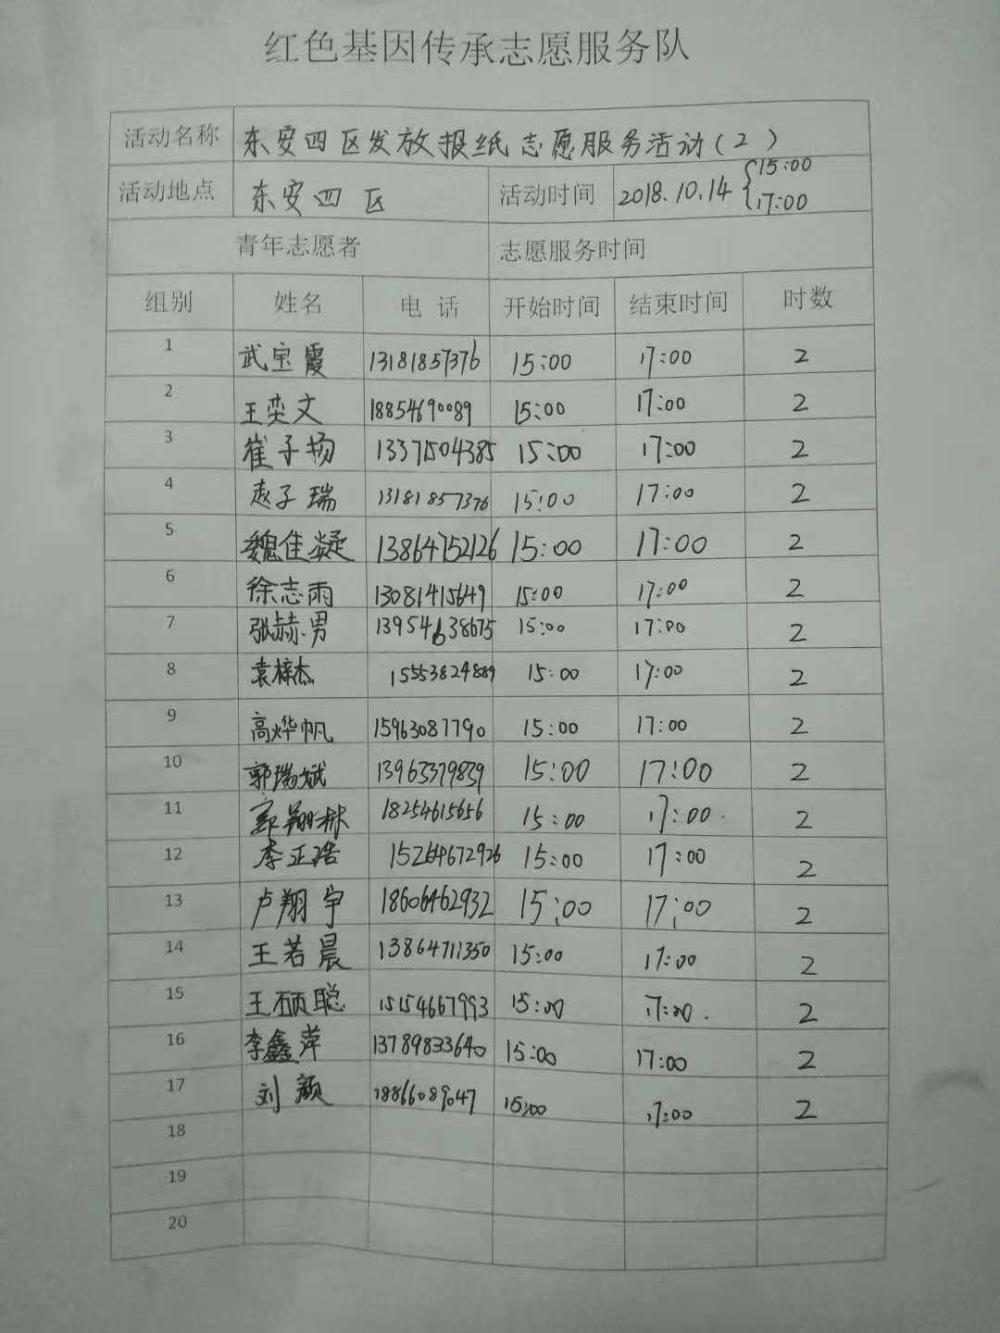 红色基因传承志愿服务队
活动名称 东安四区发放报纸志愿服务活动(2)
活动地点 东安四区 活动时间 2018.10.14 {15:00 17:00
青年志愿者 志愿服务时间
组别 姓名 电话 开始时间 结束时间 时数
1 武宝霞 13181857376 15:00 17:00 2
2 王奕文 18854690089 15:00 17:00 2
3 崔子扬 13371504385 15:00 17:00 2
4 赵子瑞 13181857376 15:00 17:00 2
5 魏佳凝 13864752126 15:00 17:00 2
6 徐志雨 13081415649 15:00 17:00 2
7 张赫男 13954638675 15:00 17:00 2
8 袁梓杰 15553824889 15:00 17:00 2
9 高烨帆 15963087790 15:00 17:00 2
10 郭瑞斌 13963379839 15:00 17:00 2
11 18254615656 15:00 17:00 2
12 李正浩 15264672926 15:00 17:00 2
13 卢翔宇 18606462932 15:00 17:00 2
14 王若晨 13864711350 15:00 17:00 2
15 王硕聪 15154667993 15:00 17:00 2
16 李鑫萍 13789833640 15:00 17:00 2
17 刘颖 18866089047 15:00 17:00 2
18
19
20